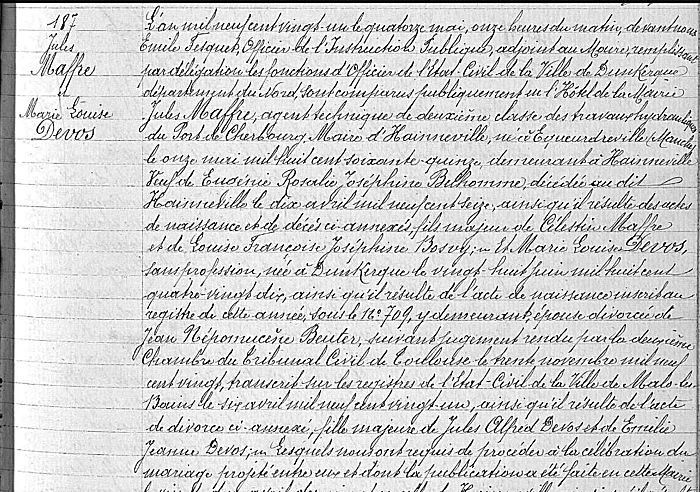 187
Jules
Maffre
et
Marie Louise
Devos
L'an mil neuf cent vingt-un le quatorze mai, onze heures du matin, devant nous
Emile Fesquet, Officier de l'Instruction Publique, adjoint au Maire, remplissant
par délégation les fonctions d'Officier de l'Etat-Civil de la Ville de Dunkerque
département du Nord, sont comparus publiquement en l'Hôtel de la Mairie
Jules Maffre, agent technique de deuxième classe des travaux hydrauliques
du Port de Cherbourg, Maire d'Hainneville, né à Equeurdreville (Manche)
le onze mai mil huit cent soixante quinze, demeurant à Hainneville
Veuf de Eugénie Rosalie Joséphine Belhomme, décédée au dit
Hainneville le dix avril mil neuf cent seize, ainsi qu'il résulte des actes
de naissance et de décès ci-annexés, fils majeur de Célestin Maffre
et de Louise Françoise Joséphine Bosvy; Et Marie Louise Devos,
sans profession, née à Dunkerque le vingt-huit juin mil huit cent
quatre-vingt dix, ainsi qu'il résulte de l'acte de naissance inscrit au
registre de cette année, sous le No 709, y demeurant, épouse divorcée de
Jean Népomucène Beuter, suivant jugement rendu par la deuxième
Chambre du Tribunal Civil de Toulouse le trente novembre mil neuf
cent vingt, transcrit sur les registres de l'Etat-Civil de la Ville de Malo-les
Bains le six avril mil neuf cent vingt-un, ainsi qu'il résulte de l'acte
de divorce ci-annexé, fille majeure de Jules Alfred Devos et de Emilie
Jeanne Devos; Lesquels nous ont requis de procéder à la célébration du
mariage projeté entre eux et dont la publication a été faite en cette Mairie